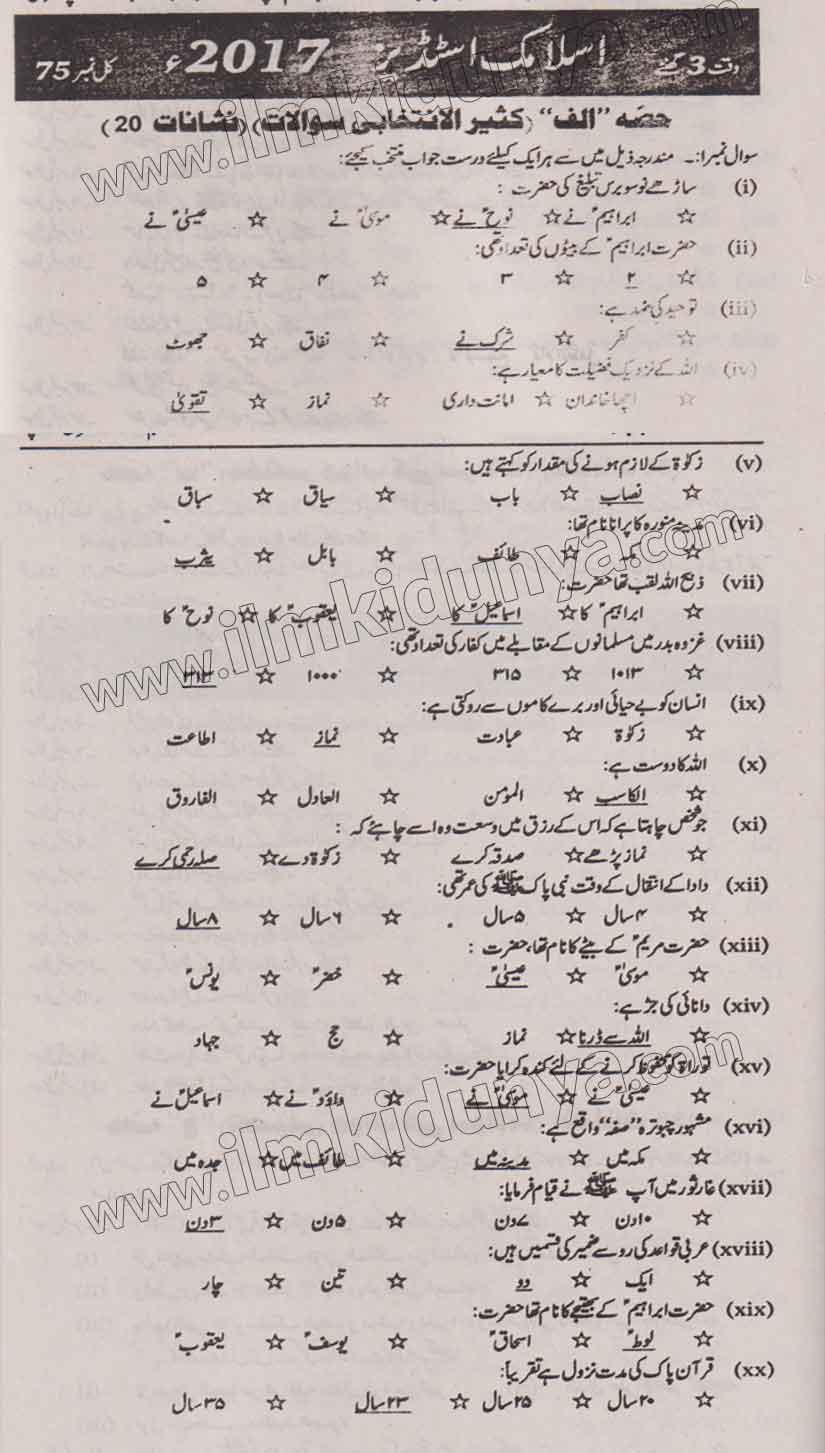 وقت 3 گھنٹے اسلامک اسٹڈیز 2017ء کل نمبر 75
حصّہ "الف" (کثیر الانتخابی سوالات) (نشانات 20)
سوال نمبر 1:۔ مندرجہ ذیل میں سے ہر ایک کیلئے درست جواب منتخب کیجئے:
(i) ساڑھے نو سو برس تبلیغ کی حضرت :
☆ ابراہیمؑ نے ☆ نوحؑ نے ☆ موسیٰؑ نے ☆ عیسیٰؑ نے
(ii) حضرت ابراہیمؑ کے بیٹوں کی تعداد تھی:
☆ ۲ ☆ ۳ ☆ ۴ ☆ ۵
(iii) توحید کی ضد ہے:
☆ کفر ☆ شرک نے ☆ نفاق ☆ جھوٹ
(iv) اللہ کے نزدیک فضیلت کا معیار ہے:
☆ اچھا خاندان ☆ امانت داری ☆ نماز ☆ تقویٰ
(v) زکوٰۃ کے لازم ہونے کی مقدار کو کہتے ہیں:
☆ نصاب ☆ باب ☆ سیاق ☆ سباق
(vi) مدینہ منورہ کا پرانا نام تھا:
☆ مکہ ☆ طائف ☆ بابل ☆ یثرب
(vii) ذبیح اللہ لقب تھا حضرت:
☆ ابراہیمؑ کا ☆ اسماعیلؑ کا ☆ یعقوبؑ کا ☆ نوحؑ کا
(viii) غزوہ بدر میں مسلمانوں کے مقابلے میں کفار کی تعداد تھی:
☆ ۱۰۱۳ ☆ ۳۱۵ ☆ ۱۰۰۰ ☆ ۳۱۳
(ix) انسان کو بے حیائی اور برے کاموں سے روکتی ہے:
☆ زکوٰۃ ☆ عبادت ☆ نماز ☆ اطاعت
(x) اللہ کا دوست ہے:
☆ الکاسب ☆ المؤمن ☆ العادل ☆ الفاروق
(xi) جو شخص چاہتا ہے کہ اس کے رزق میں وسعت ہو اسے چاہئے کہ :
☆ نماز پڑھے ☆ صدقہ کرے ☆ زکوٰۃ دے ☆ صلہ رحمی کرے
(xii) دادا کے انتقال کے وقت نبی پاک ﷺ کی عمر تھی:
☆ ۴ سال ☆ ۵ سال ☆ ۶ سال ☆ ۸ سال
(xiii) حضرت مریمؑ کے بیٹے کا نام تھا، حضرت :
☆ موسیٰؑ ☆ عیسیٰؑ ☆ خضرؑ ☆ یونسؑ
(xiv) دانائی کی جڑ ہے:
☆ اللہ سے ڈرنا ☆ نماز ☆ حج ☆ جہاد
(xv) توراۃ کو محفوظ کرنے کے لئے کندہ کرایا حضرت:
☆ عیسیٰؑ نے ☆ موسیٰؑ نے ☆ داؤدؑ نے ☆ اسماعیلؑ نے
(xvi) مشہور چبوترہ "صفہ" واقع ہے:
☆ مکہ میں ☆ مدینہ میں ☆ طائف میں ☆ جدہ میں
(xvii) غار ثور میں آپ ﷺ نے قیام فرمایا:
☆ ۱۰ دن ☆ ۷ دن ☆ ۵ دن ☆ ۳ دن
(xviii) عربی قواعد کی رو سے ضمیر کی قسمیں ہیں:
☆ ایک ☆ دو ☆ تین ☆ چار
(xix) حضرت ابراہیمؑ کے بھتیجے کا نام تھا حضرت:
☆ لوطؑ ☆ اسحاقؑ ☆ یوسفؑ ☆ یعقوبؑ
(xx) قرآن پاک کی مدت نزول ہے تقریباً:
☆ ۲۰ سال ☆ ۲۵ سال ☆ ۲۳ سال ☆ ۳۵ سال
www.ilmkidunya.com
www.ilmkidunya.com
www.ilmkidunya.com